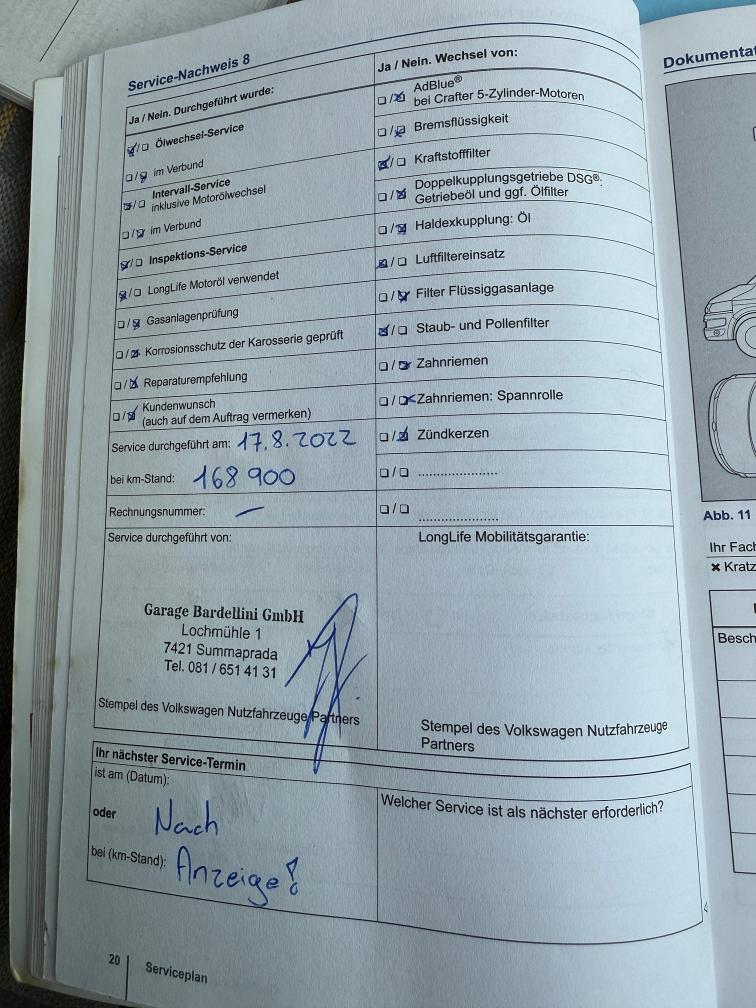 Service-Nachweis 8
Ja / Nein. Durchgeführt wurde:
☑/☐ Ölwechsel-Service
☐/☑ im Verbund
☑/☐ Intervall-Service
inklusive Motorölwechsel
☐/☑ im Verbund
☑/☐ Inspektions-Service
☑/☐ LongLife Motoröl verwendet
☐/☑ Gasanlagenprüfung
☐/☑ Korrosionsschutz der Karosserie geprüft
☐/☑ Reparaturempfehlung
☐/☑ Kundenwunsch
(auch auf dem Auftrag vermerken)
Service durchgeführt am: 17.8.2022
bei km-Stand: 168 900
Rechnungsnummer: —
Service durchgeführt von:
Garage Bardellini GmbH
Lochmühle 1
7421 Summaprada
Tel. 081 / 651 41 31
Stempel des Volkswagen Nutzfahrzeuge Partners
Ja / Nein. Wechsel von:
☐/☑ AdBlue®
bei Crafter 5-Zylinder-Motoren
☐/☑ Bremsflüssigkeit
☑/☐ Kraftstofffilter
☐/☑ Doppelkupplungsgetriebe DSG®:
Getriebeöl und ggf. Ölfilter
☐/☑ Haldexkupplung: Öl
☑/☐ Luftfiltereinsatz
☐/☑ Filter Flüssiggasanlage
☑/☐ Staub- und Pollenfilter
☐/☑ Zahnriemen
☐/☑ Zahnriemen: Spannrolle
☐/☑ Zündkerzen
☐/☐ .....................
☐/☐ .....................
LongLife Mobilitätsgarantie:
Stempel des Volkswagen Nutzfahrzeuge
Partners
Ihr nächster Service-Termin
ist am (Datum):
oder Nach
bei (km-Stand): Anzeige!
Welcher Service ist als nächster erforderlich?
20 Serviceplan
Dokumentat
Abb. 11
Ihr Fach
✖ Kratz
Besch